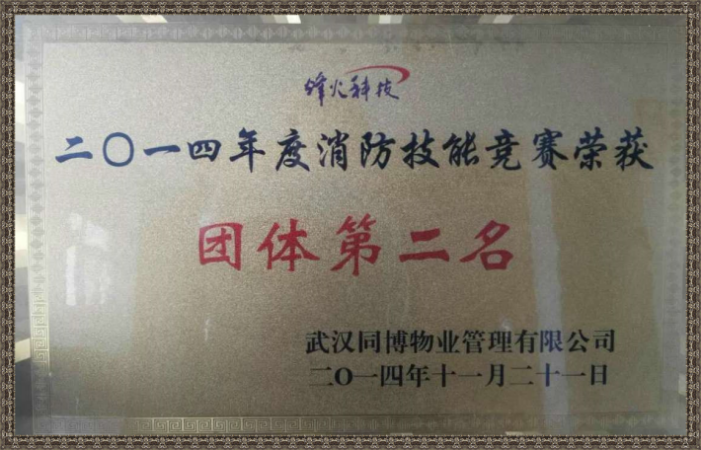 烽火科技
二〇一四年度消防技能竞赛荣获
团体第二名
武汉同博物业管理有限公司
二〇一四年十一月二十一日